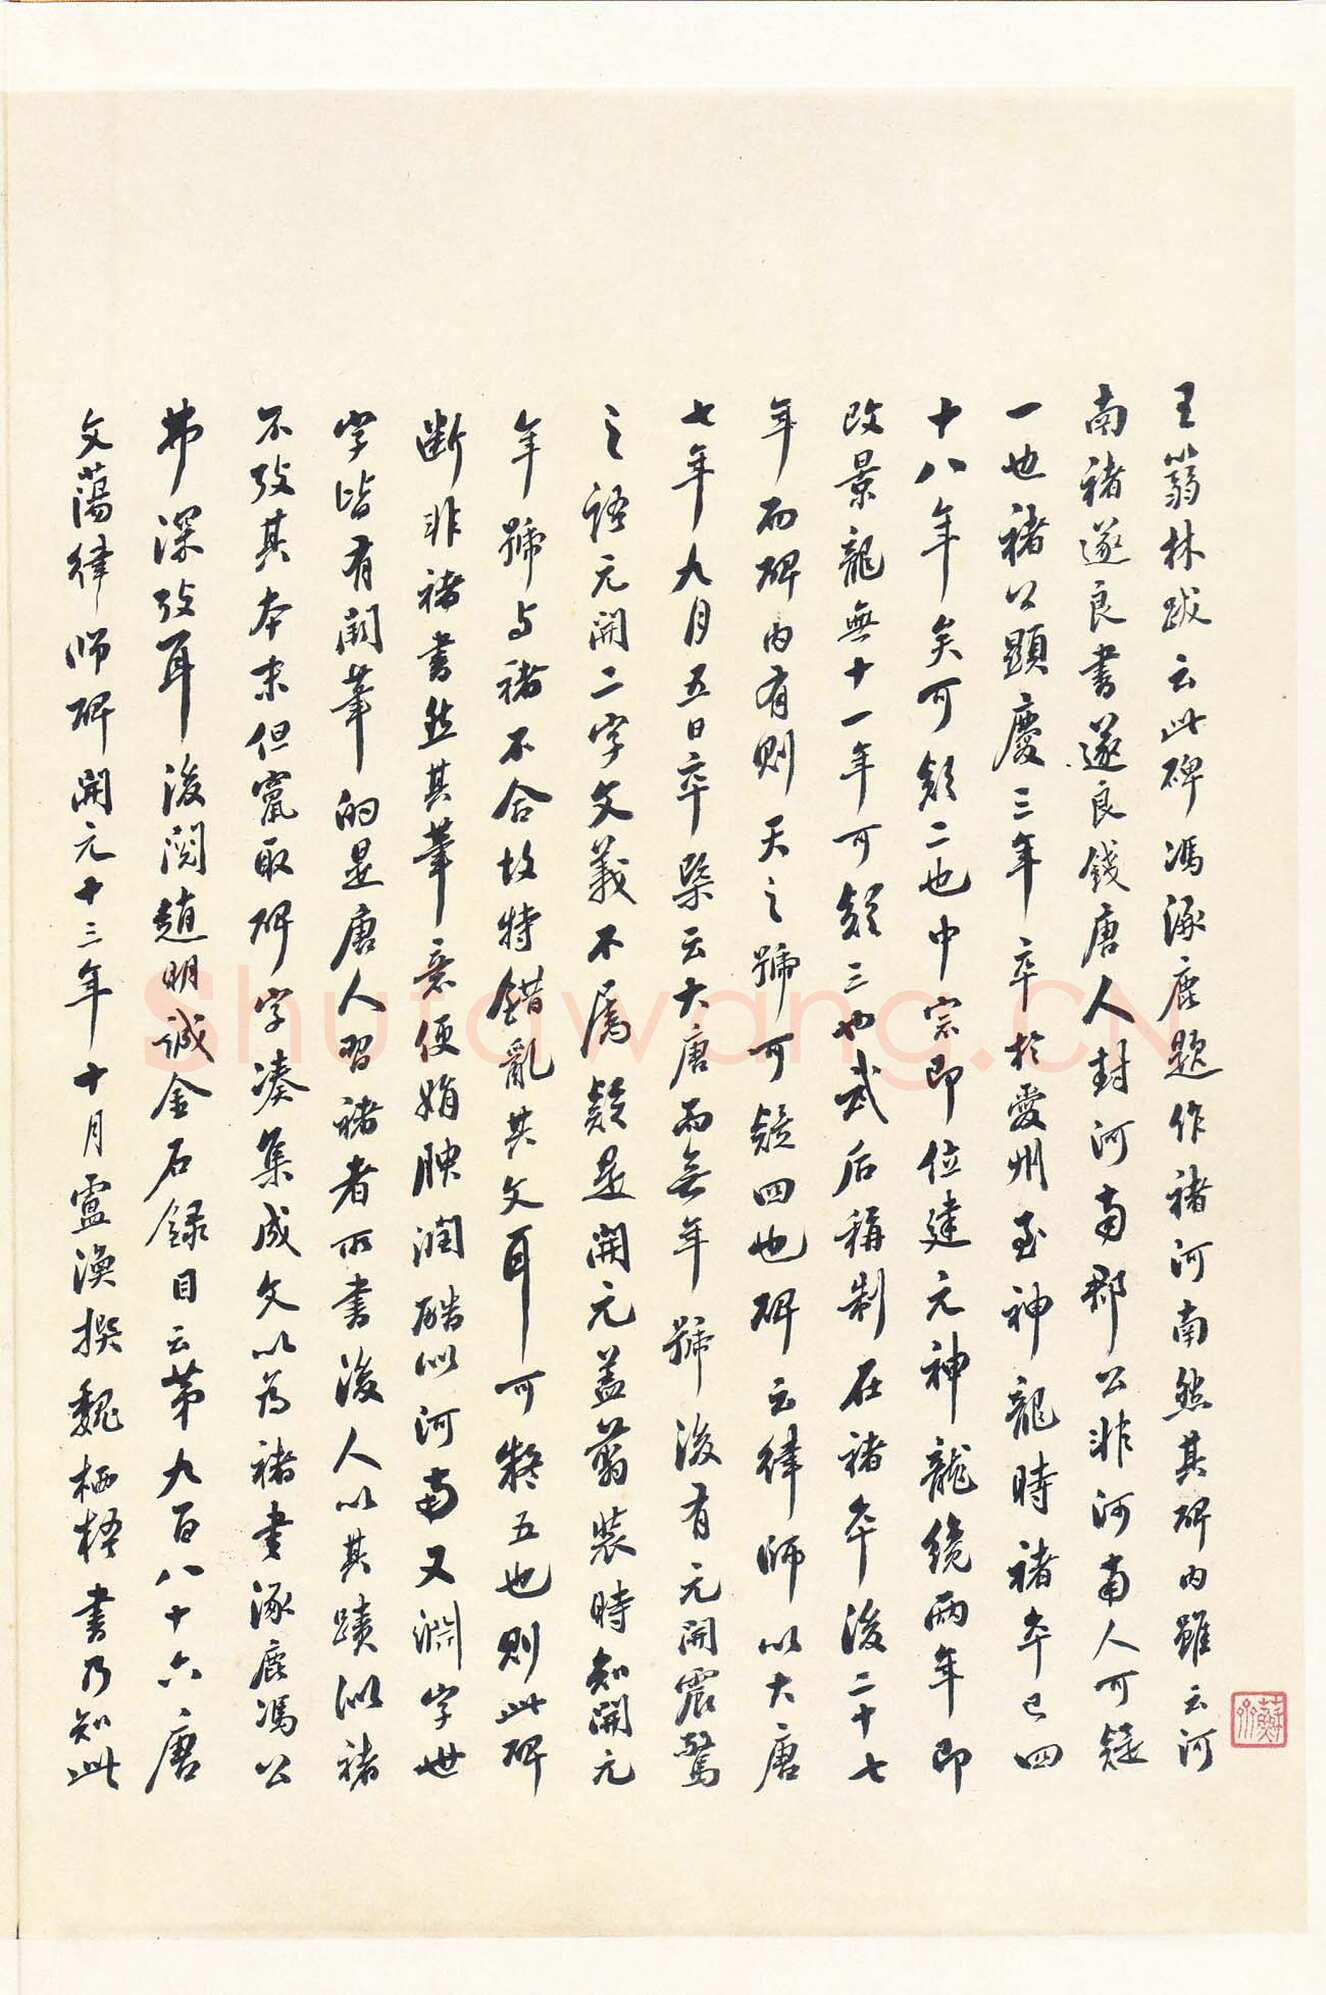 王蒻林跋云此碑馮涿鹿題作褚河南然其碑内雖云河
南褚遂良書遂良錢唐人封河南郡公非河南人可疑
一也褚公顯慶三年卒於愛州至神龍時褚卒已四
十八年矣可疑二也中宗即位建元神龍纔兩年即
改景龍無十一年可疑三也武后稱制在褚卒後二十七
年而碑内有則天之號可疑四也碑云律師以大唐
七年九月五日卒槩云大唐而無年號後有元開震驚
之語元開二字文義不属疑是開元盖剪裝時知開元
年號与褚不合故特錯亂其文耳可疑五也則此碑
斷非褚書然其筆意便娟腴潤酷似河南又淵字世
字皆有闕筆的是唐人習褚者所書後人以其蹟似褚
不攷其本末但竄取碑字凑集成文以為褚書涿鹿馮公
弗深攷耳後閱趙明誠金石録目云第九百八十六唐
文蕩律师碑開元十三年十月盧渙撰魏栖梧書乃知此
蘇
Shufawang.CN